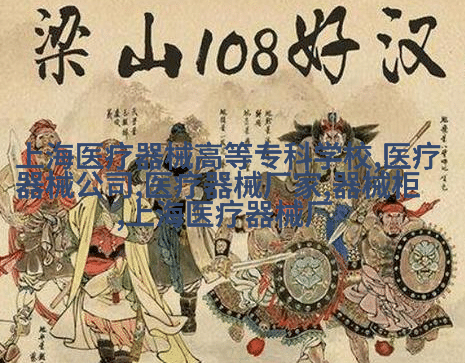 梁山108好汉
上海医疗器械高等专科学校,医疗
器械公司,医疗器械厂家,器械柜
,上海医疗器械厂